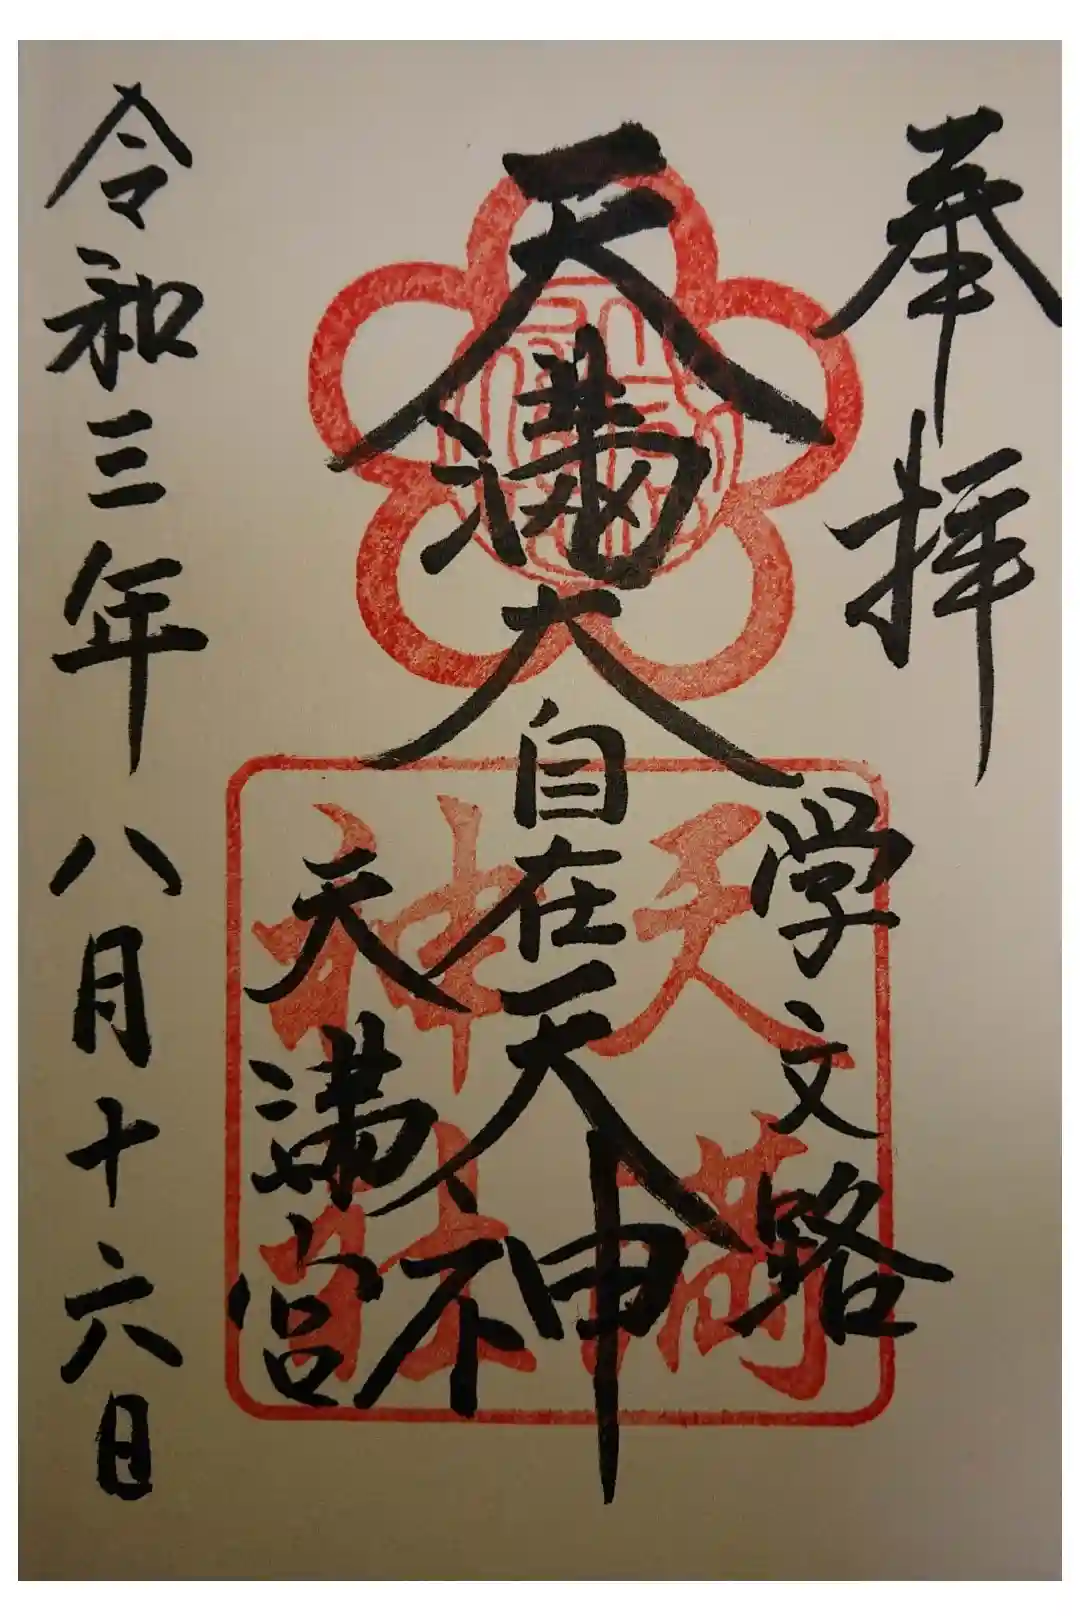 奉拝
学文路
天満大自在天神
天満宮
令和三年八月十六日
天満
神社